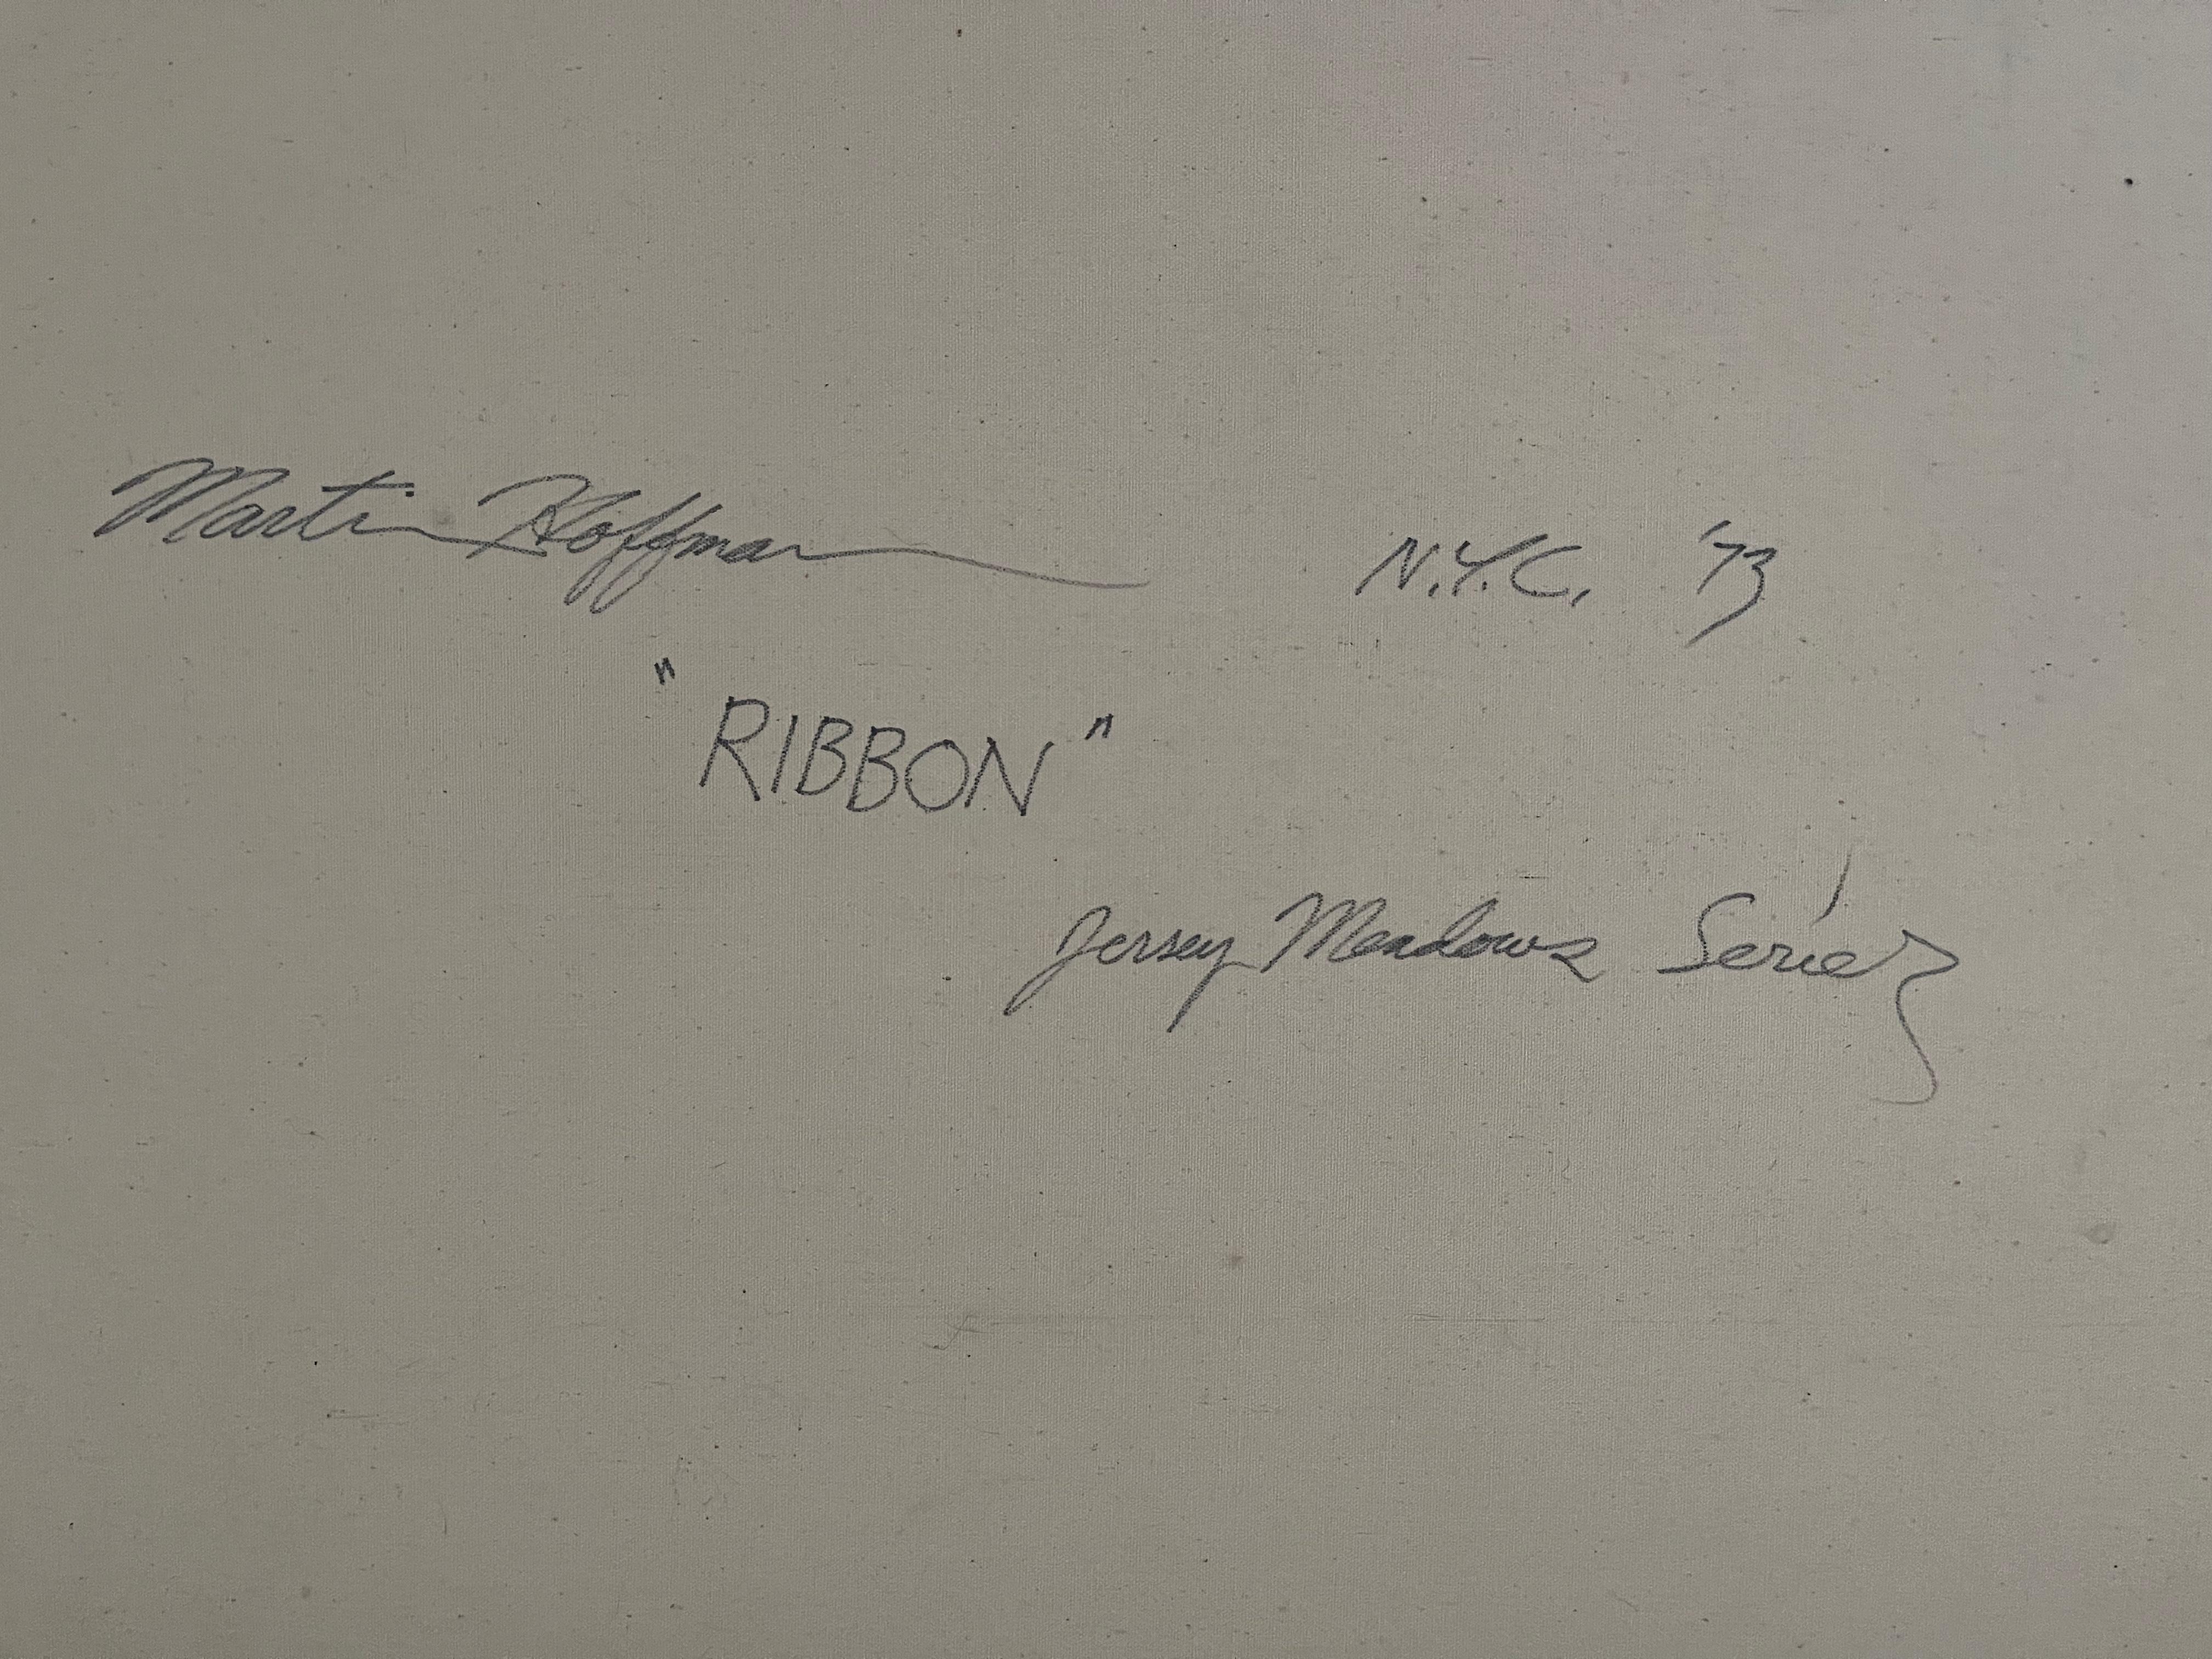 Martin Hoffman N.Y.C. '73
"RIBBON"
Jersey Meadows Series